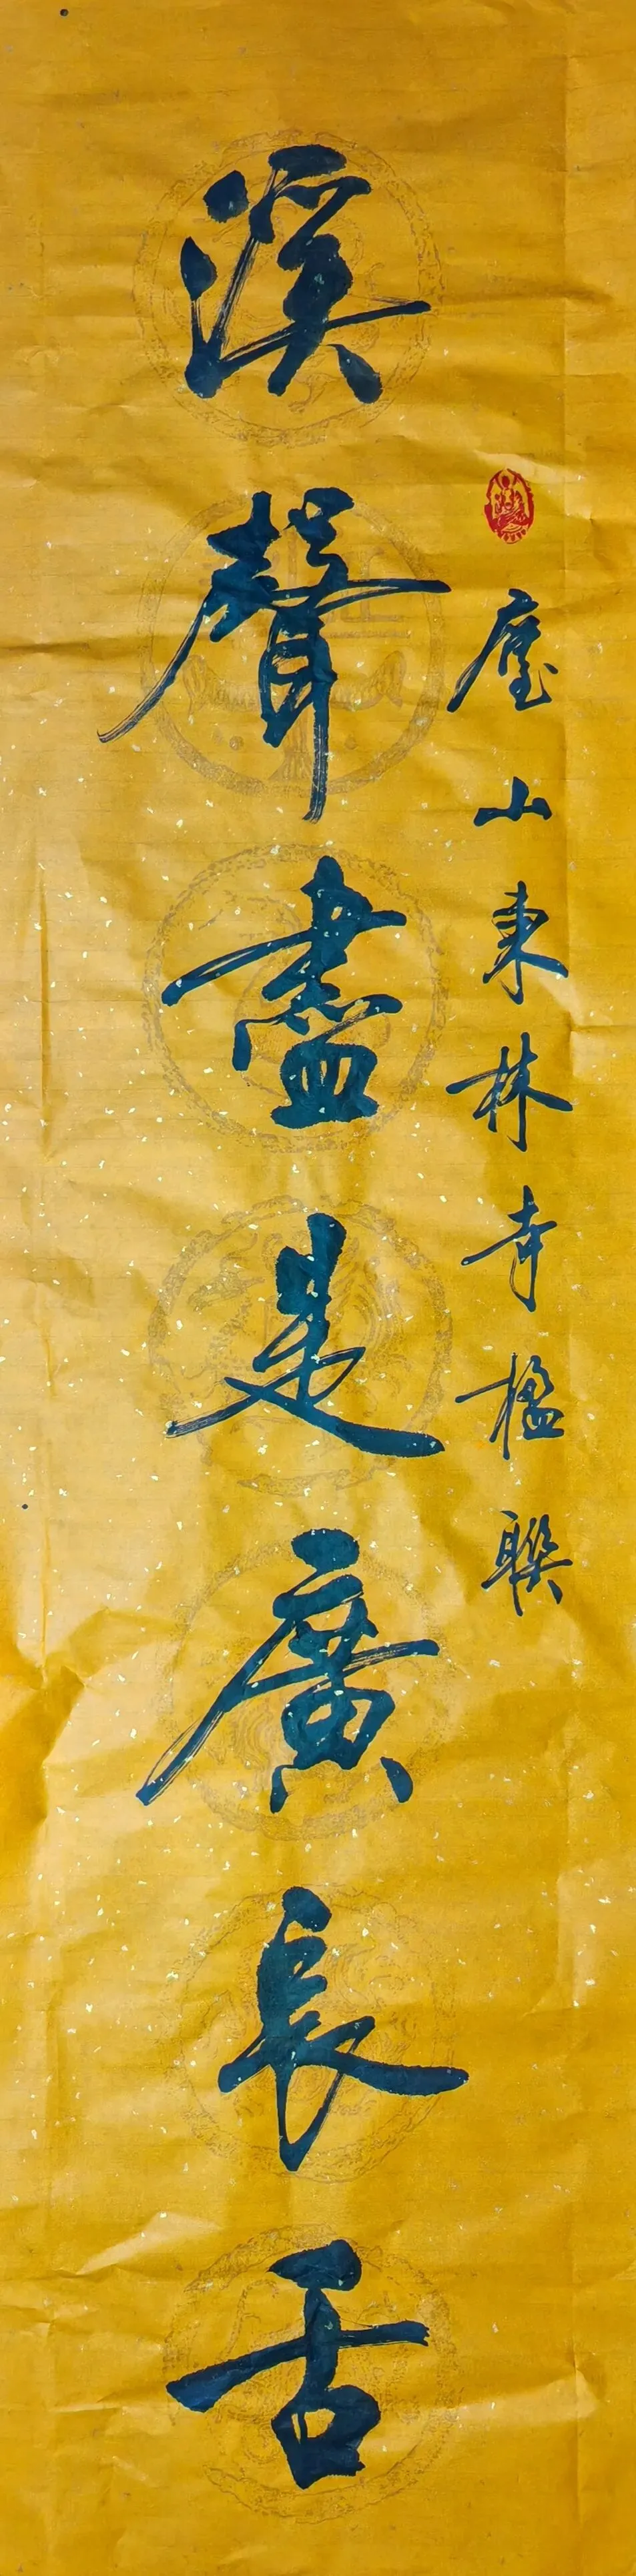 廬山東林寺楹聯
溪聲盡是廣長舌